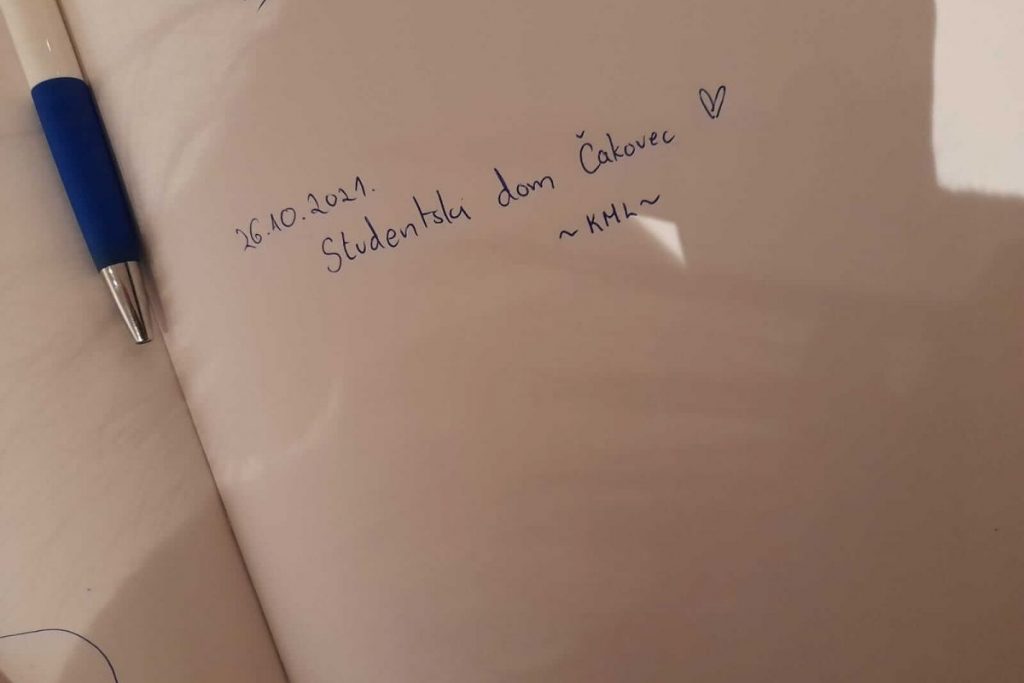 26.10.2021.
Studentski dom Čakovec ♡
~KML~